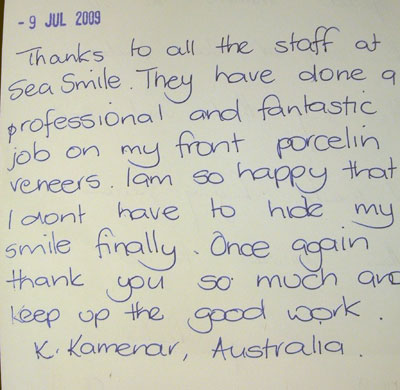 - 9 JUL 2009
Thanks to all the staff at
Sea Smile. They have done a
professional and fantastic
job on my front porcelin
veneers. I am so happy that
I dont have to hide my
smile finally. Once again
thank you so much and
keep up the good work.
K. Kamenar, Australia.